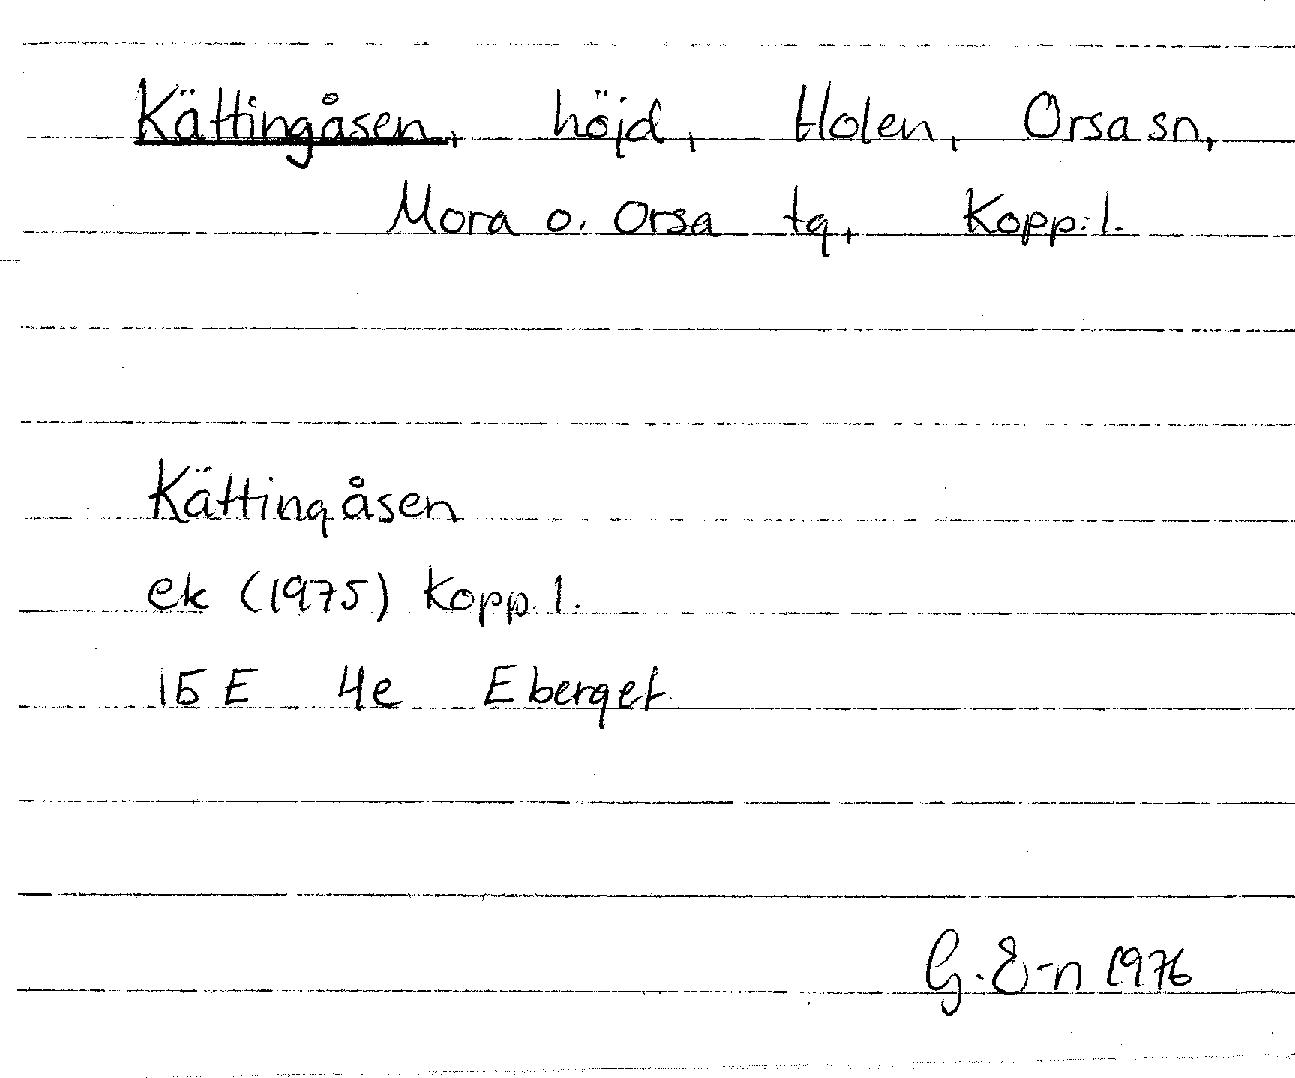 Kättingåsen, höjd, Holen, Orsa sn,
Mora o. Orsa tg, Kopp. l.
Kättingåsen
ek (1975) Kopp. l.
15 E 4e Eberget
G. E-n 1976